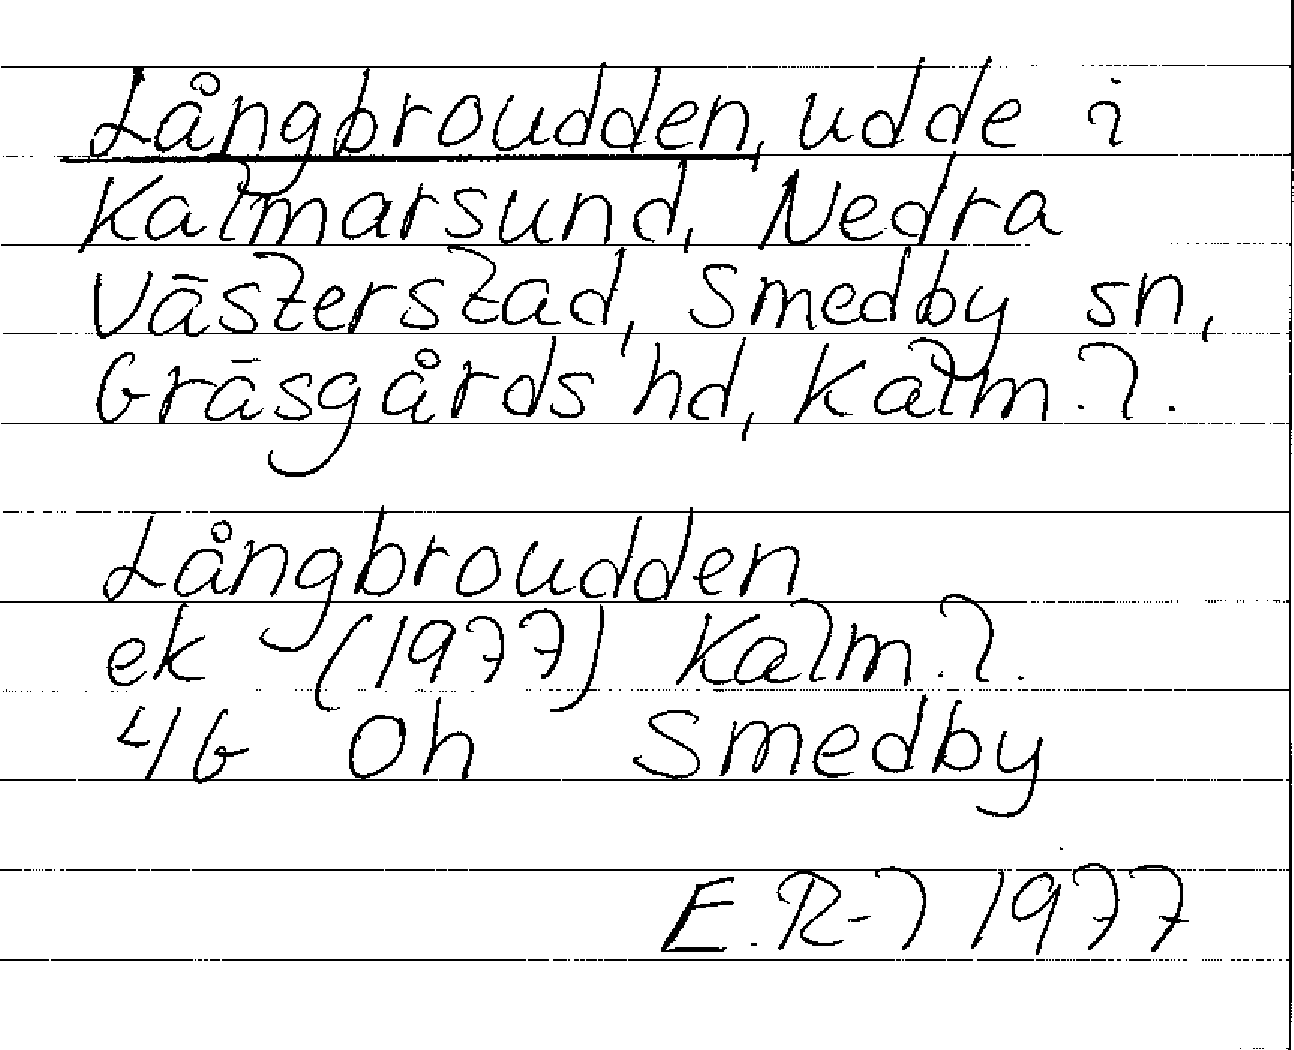 Långbroudden, udde i
Kalmarsund, Nedra
Västerstad, Smedby sn,
Gräsgårds hd, Kalm. l.
Långbroudden
ek (1977) Kalm. l.
4G 0h Smedby
E. R-l 1977